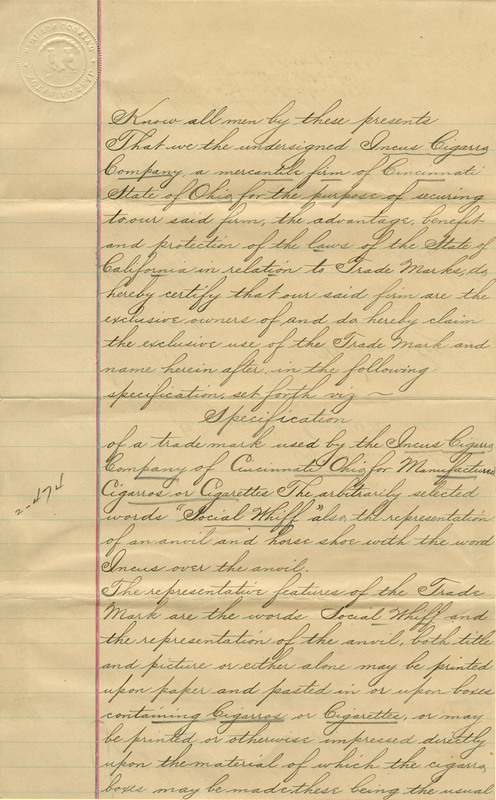 Know all men by these presents
That we the undersigned Incus Cigarro
Company, a mercantile firm of Cincinnati
State of Ohio, for the purpose of securing
to our said firm, the advantage, benefit
and protection of the laws of the State of
California in relation to Trade Marks, do
hereby certify that our said firm are the
exclusive owners of and do hereby claim
the exclusive use of the Trade Mark and
name herein after, in the following
specification, set forth viz ~
Specification
of a trade mark used by the Incus Cigarro
Company of Cincinnati Ohio, for Manufactured
Cigarros or Cigarettes The arbitrarily selected
words "Social Whiff" also, the representation
of an anvil and horse shoe with the word
Incus over the anvil.
The representative features of the Trade
Mark are the words Social Whiff and
the representation of the anvil, both title
and picture or either alone may be printed
upon paper and pasted in or upon boxes
containing Cigarros or Cigarettes, or may
be printed or otherwise impressed directly
upon the material of which the cigarro
boxes may be made these being the usual